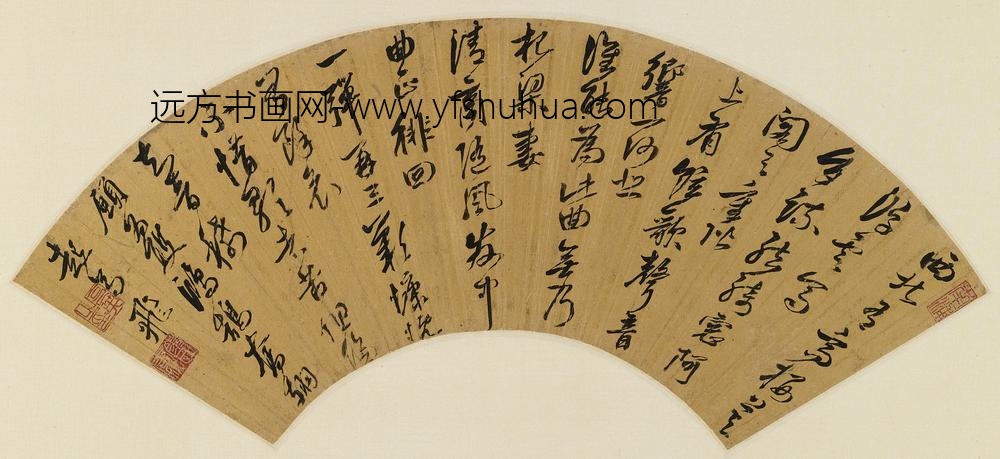 西北有高樓上与
浮雲齊
交疏結綺窗阿
閣三重階
上有絃歌聲音
響一何悲
誰能為此曲無乃
杞梁妻
清商隨風發中
曲正排回
一彈再三歎慷慨
有餘哀
不惜歌者苦但傷
知音稀
願為雙鴻鵠奮
起高飛
远方书画网 www.yfshuhua.com